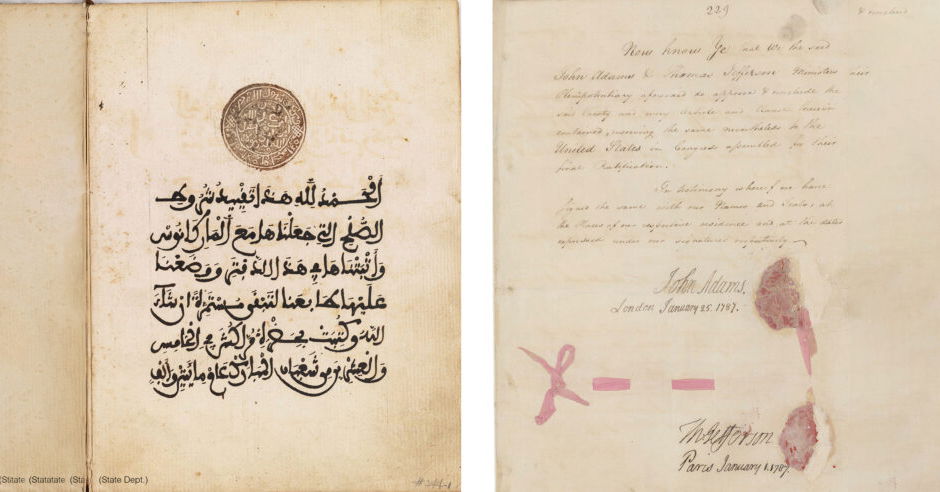 الحمد لله هذا تقييد شروط
الصلح التي جعلناها مع الماركانوس
وأثبتناها في هذا الدفتر ووضعنا
عليها طابعنا لتبقى مستمرة إن شاء
الله وكتبت بحضرة مراكش في الخامس
والعشرين من شعبان المبارك عام مايتين وألف
(State Dept.)
229
Now know Ye that We the said
John Adams & Thomas Jefferson Ministers
Plenipotentiary aforesaid do approve & conclude the
said Treaty and every Article and Clause therein
contained, reserving the same nevertheless to the
United States in Congress assembled for their
final Ratification.
In testimony whereof we have
signed the same with our Names and Seals at
the places of our respective residence and at the dates
expressed under our signatures respectively
John Adams.
London January 25. 1787.
Th Jefferson
Paris January 1. 1787.